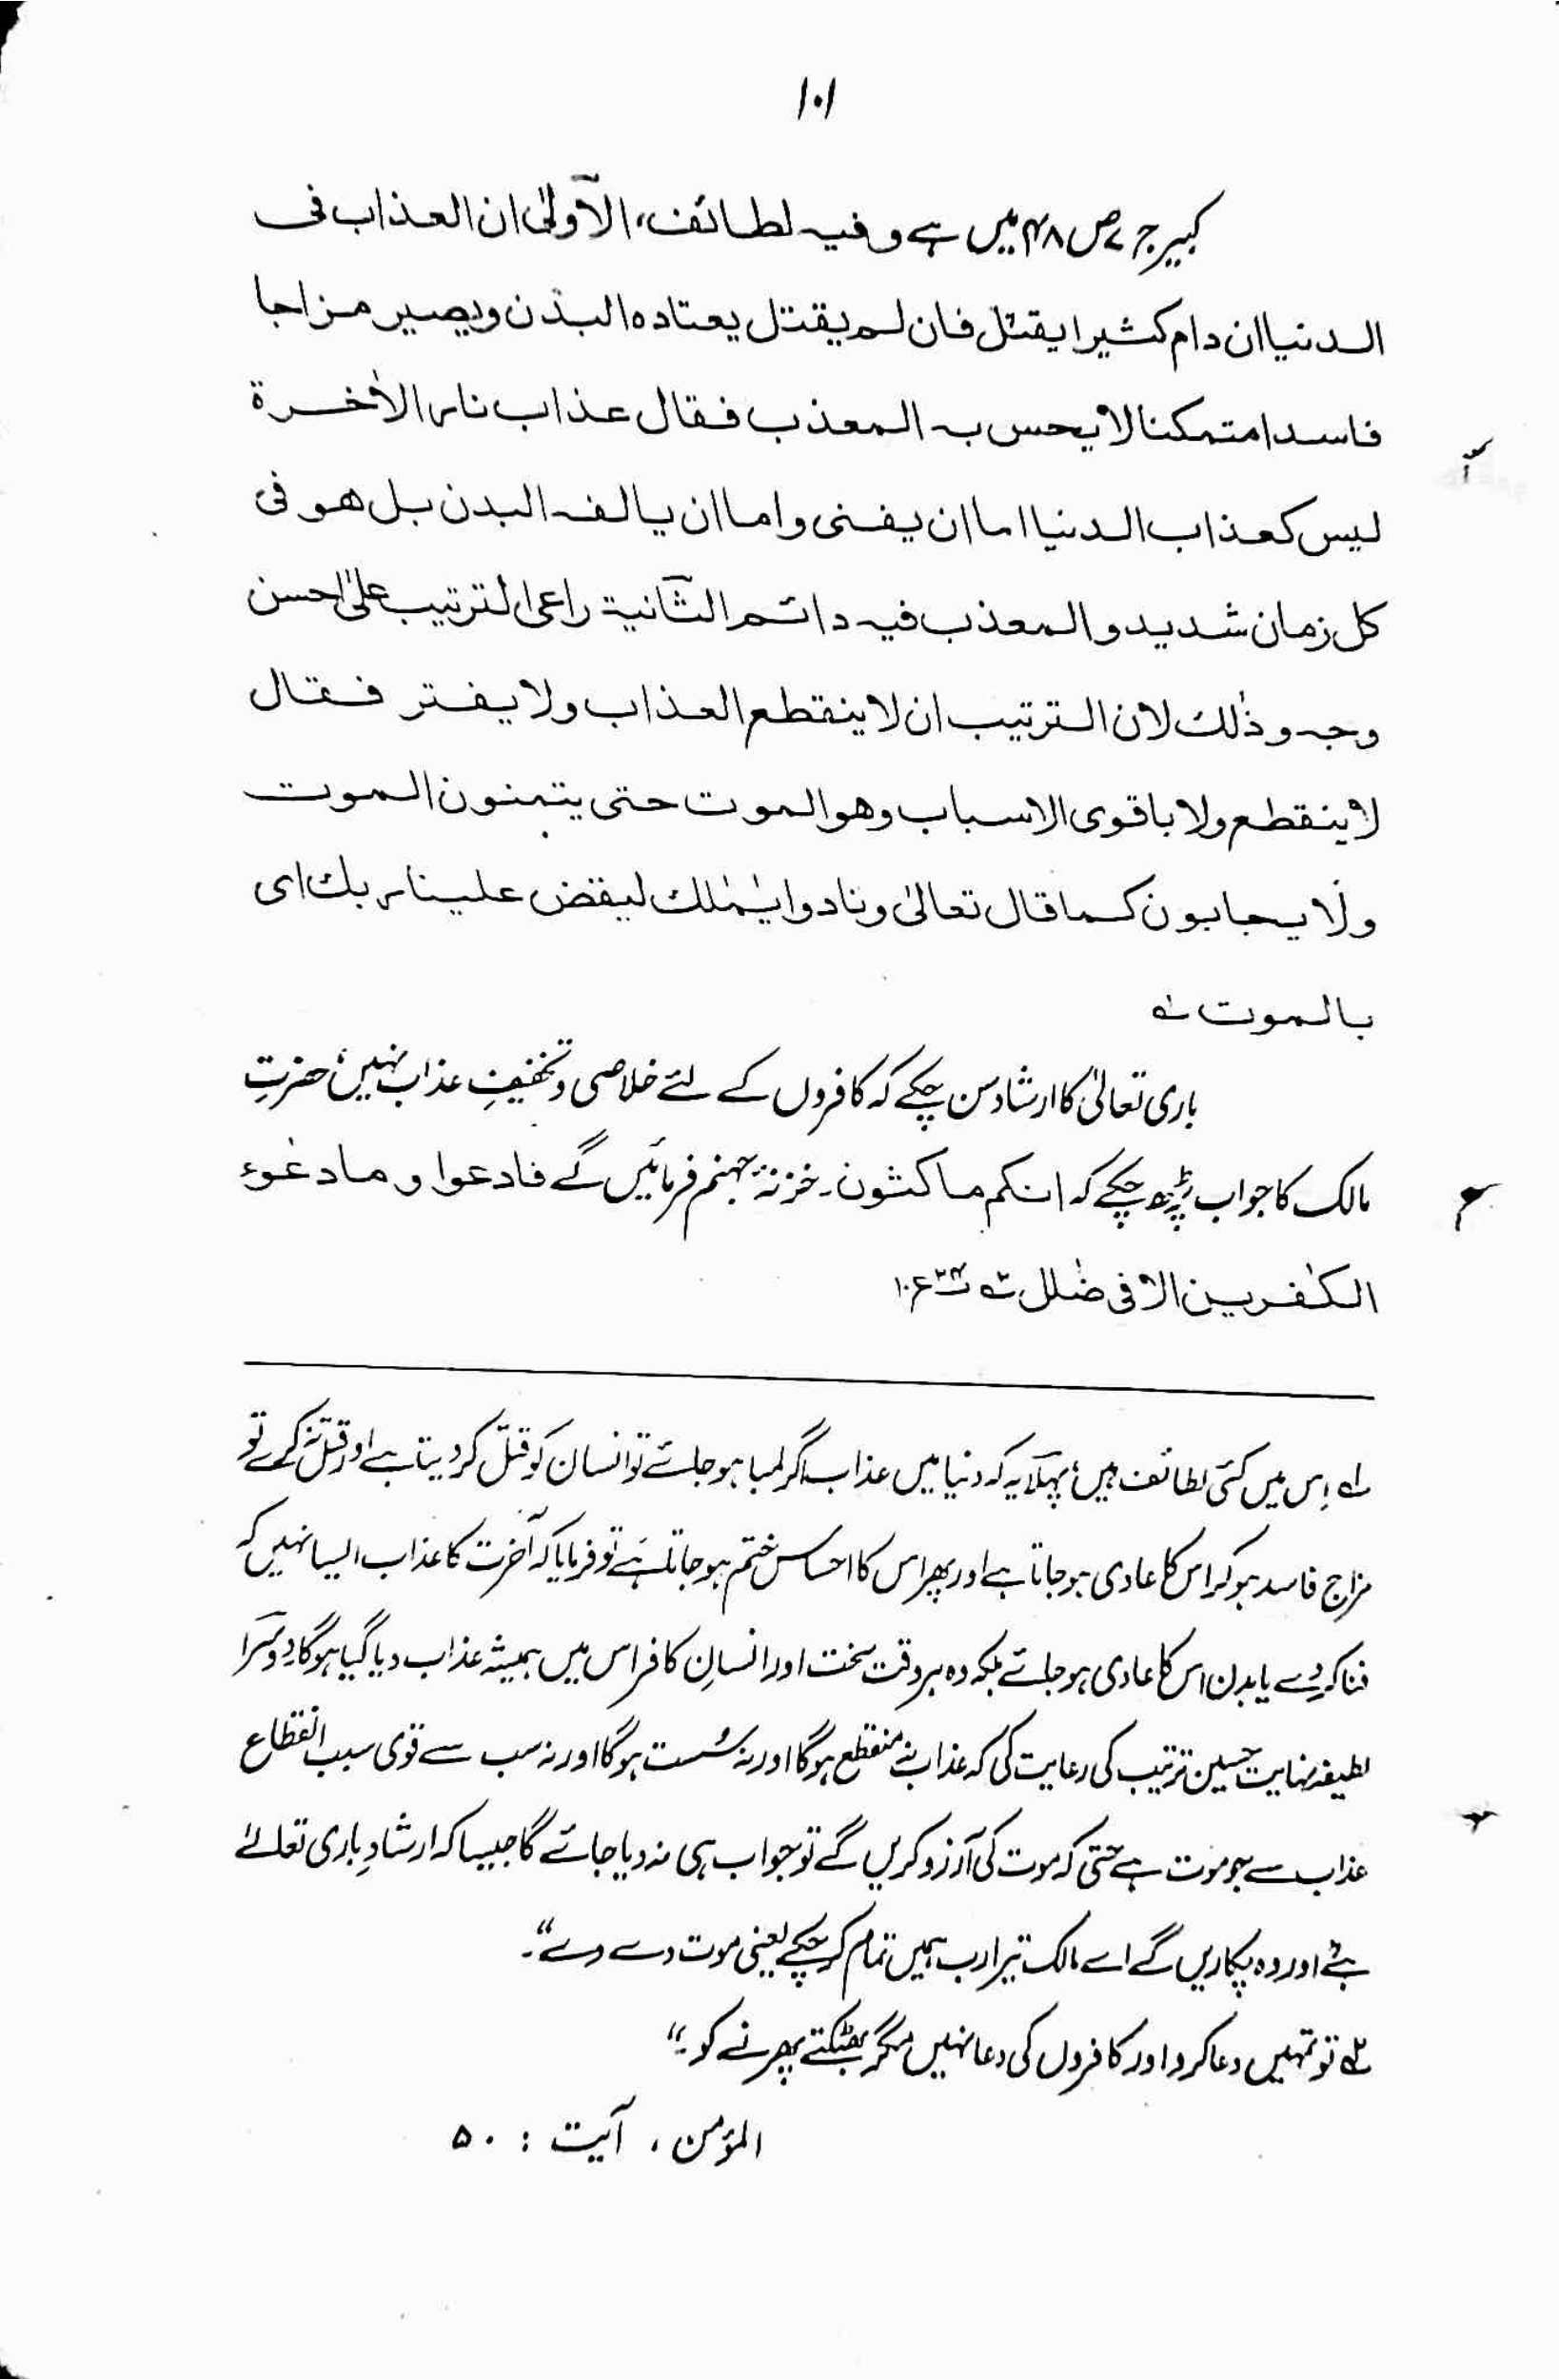 ۱۰۱
کبیر ج ۷ ص ۴۸ میں ہے وفیہ لطائف، الاولیٰ ان العذاب فی
الدنیا ان دام کثیرا یقتل فان لم یقتل یعتادہ البدن ویصیر مزاجا
فاسدا متمکنا لا یحس بہ المعذب فقال عذاب نار الاٰخرة
لیس کعذاب الدنیا اما ان یفنی واما ان یالفہ البدن بل ھو فی
کل زمان شدید والمعذب فیہ دائم الثانیة راعی الترتیب علیٰ احسن
وجہ وذٰلک لان الترتیب ان لا ینقطع العذاب ولا یفتر فقال
لا ینقطع ولا باقوی الاسباب وھو الموت حتی یتمنون الموت
ولا یجابون کما قال تعالیٰ ونادوا یٰمٰلک لیقض علینا ربک ای
بالموت ۱؎
باری تعالیٰ کا ارشاد سن چکے کہ کافروں کے لئے خلاصی و تخفیفِ عذاب نہیں، حضرتِ
مالک کا جواب پڑھ چکے کہ انکم ماکثون۔ خزنۂ جہنم فرمائیں گے فادعوا وما دعٰؤ
الکٰفرین الا فی ضٰلل ۲؎ پ۲۴ ع۱۰
۱؎ اِس میں کئی لطائف ہیں، پہلا یہ کہ دنیا میں عذاب اگر لمبا ہو جائے تو انسان کو قتل کر دیتا ہے اور قتل نہ کرے تو
مزاج فاسد ہو کر اس کا عادی ہو جاتا ہے اور پھر اس کا احساس ختم ہو جاتا ہے، تو فرمایا کہ آخرت کا عذاب ایسا نہیں کہ
فنا کر دے یا بدن اس کا عادی ہو جائے بلکہ وہ ہر وقت سخت اور انسانِ کافر اس میں ہمیشہ عذاب دیا گیا ہوگا، دوسرا
لطیفہ نہایت حسین ترتیب کی رعایت کی کہ عذاب نہ منقطع ہوگا اور نہ سُست ہوگا اور نہ سب سے قوی سبب انقطاع
عذاب سے جو موت ہے حتی کہ موت کی آرزو کریں گے تو جواب ہی نہ دیا جائے گا جیسا کہ ارشادِ باری تعالےٰ
ہے، اور وہ پکاریں گے اے مالک تیرا رب ہمیں تمام کر چکے یعنی موت دے دے"۔
۲؎ تو تمہیں دعا کرو اور کافروں کی دعا نہیں مگر بھٹکتے پھرنے کو۔"
المؤمن، آیت : ۵۰